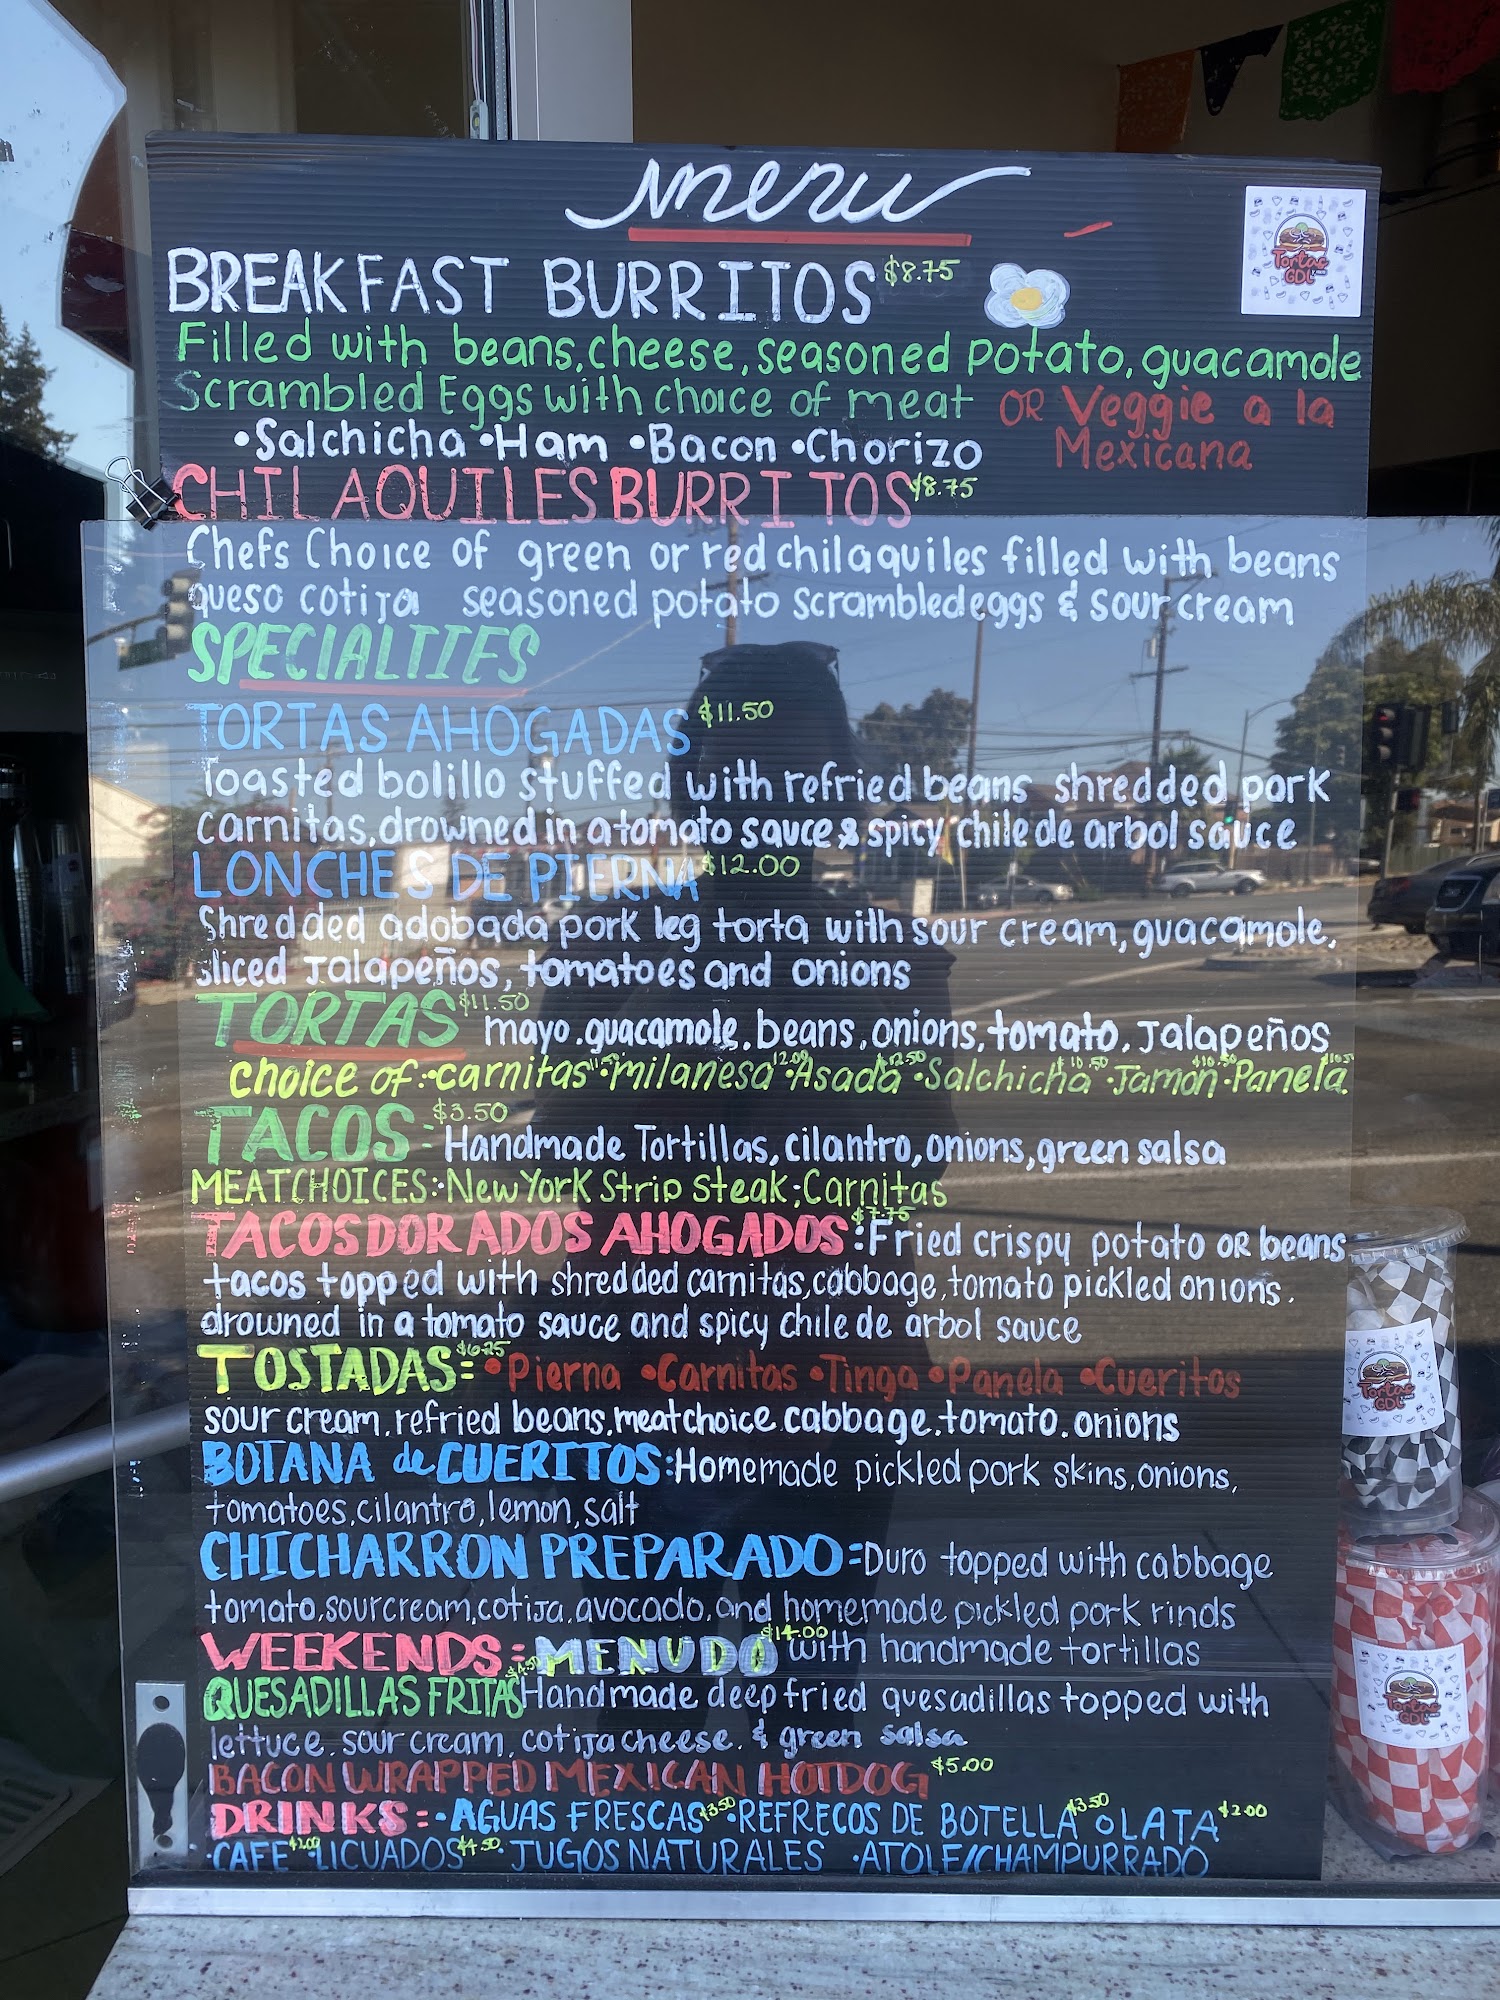 menu
Tortas
GDL
BREAKFAST BURRITOS $8.75
Filled with beans, cheese, seasoned potato, guacamole
Scrambled Eggs with choice of meat OR Veggie a la
Mexicana
•Salchicha •Ham •Bacon •Chorizo
CHILAQUILES BURRITOS $8.75
Chefs Choice of green or red chilaquiles filled with beans
queso cotija seasoned potato scrambled eggs & sour cream
SPECIALTIES
TORTAS AHOGADAS $11.50
Toasted bolillo stuffed with refried beans shredded pork
carnitas, drowned in a tomato sauce & spicy chile de arbol sauce
LONCHES DE PIERNA $12.00
Shredded adobada pork leg torta with sour cream, guacamole,
sliced Jalapeños, tomatoes and onions
TORTAS $11.50 mayo, guacamole, beans, onions, tomato, Jalapeños
choice of: •carnitas •milanesa 12.00 •Asada $12.50 •Salchicha $10.50 •Jamon $10.50 •Panela
TACOS= $3.50 Handmade Tortillas, cilantro, onions, green salsa
MEAT CHOICES: •New York Strip Steak; Carnitas
TACOS DORADOS AHOGADOS: $7.75 Fried crispy potato OR beans
tacos topped with shredded carnitas, cabbage, tomato pickled onions.
drowned in a tomato sauce and spicy chile de arbol sauce
TOSTADAS= $6.25 •Pierna •Carnitas •Tinga •Panela •Cueritos
sour cream, refried beans, meat choice cabbage, tomato, onions
BOTANA de CUERITOS: Homemade pickled pork skins, onions,
tomatoes, cilantro, lemon, salt
CHICHARRON PREPARADO= Duro topped with cabbage
tomato, sour cream, cotija, avocado, and homemade pickled pork rinds
WEEKENDS= MENUDO $14.00 with handmade tortillas
QUESADILLAS FRITAS $4.50 Handmade deep fried quesadillas topped with
lettuce, sour cream, cotija cheese, & green salsa
BACON WRAPPED MEXICAN HOTDOG $5.00
DRINKS= •AGUAS FRESCAS $3.50 •REFRECOS DE BOTELLA $3.50 O LATA $2.00
•CAFE $2.00 •LICUADOS $4.50 •JUGOS NATURALES •ATOLE/CHAMPURRADO
Tortas
GDL
Tortas
GDL